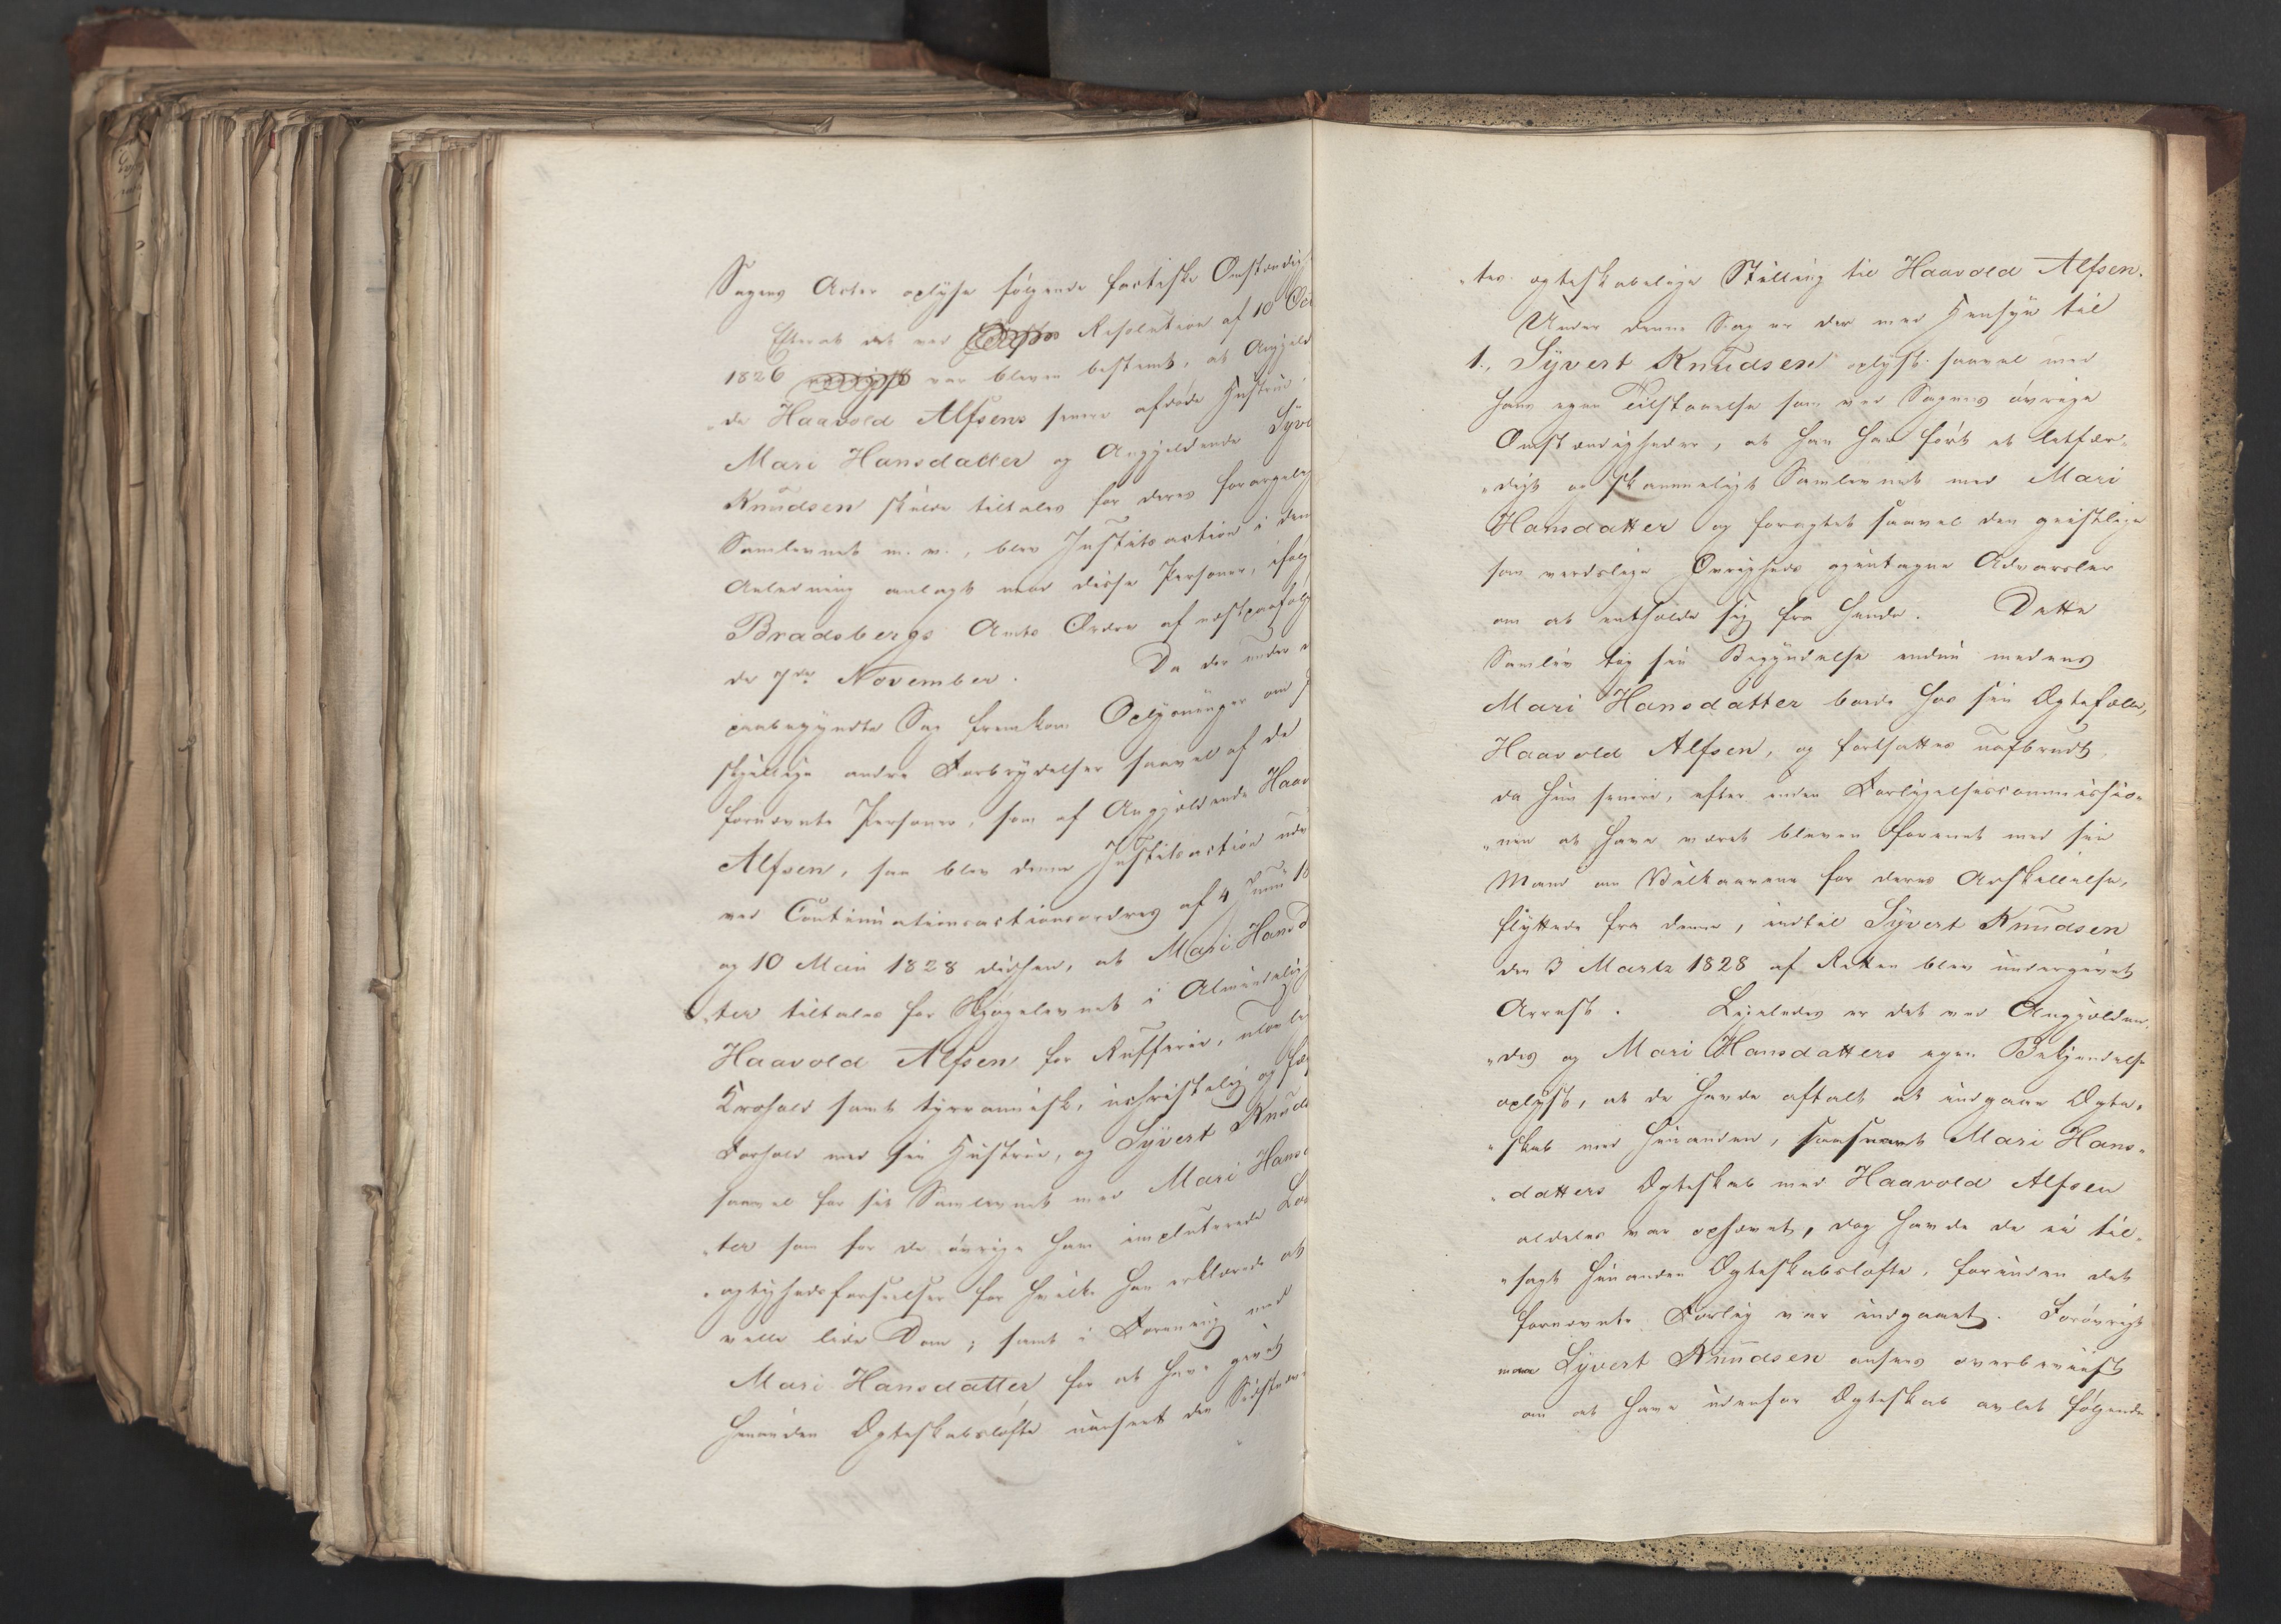 Sagens Acter oplyse følgende factiske Omstændig
Efterat det ved Resolution af 10 Oct
1826 var bleven bestemt, at Angjeld
„de Haavold Alfsens senere afdøde Hustrue
Mari Hansdatter og Angjeldende Syve
Knudsen skulde tiltales for deres forargelig
Samlevnet m. v., blev Justitsaction i den
Anledning anlagt mod disse Personer, ifølg
Bradsbergs Amts Ordre af næstpaafølg
de 7de November. Da der under d
paabegyndte Sag fremkom Oplysninger om f
skjellige andre Forbrydelser saavel af de
fornævnte Personer, som af Angjeldende Haav
Alfsen, saa blev denne Justitsaction udv
ved Continuationsactionsordres af 4 Juni 18
og 10 Mai 1828 derhen, at Mari Hansd
„ter tiltales for Skjøgelevnet i Almindelig
Haavold Alfsen for Rufferie, ulovlig
Krohold samt tyrannisk, uchristelig og
Forhold mod sin Hustrue, og Syvert Knuds
saavel for sit Samlevnet med Mari Hansd
„ter som for de øvrige ham imputerede Lø
„agtighedsforseelser for hvilke han erklærede at
ville lide Dom; samt i Forening med
Mari Hansdatter for at have givet
hinanden Ægteskabsløfte uanseet den Sidstnæv
„tes ægteskabelige Stilling til Haavold Alfsen.
Under denne Sag er der med Hensyn til
1., Syvert Knudsen oplyst saavel ved
hans egen Tilstaaelse som ved Sagens øvrige
Omstændigheder, at han har ført et letfær„
„digt og skammeligt Samlevnet med Mari
Hansdatter og foragtet saavel den geistlige
som verdslige Øvrigheds gjentagne Advarsler
om at entholde sig fra hende. Dette
Samliv tog sin Begyndelse endnu medens
Mari Hansdatter boede hos sin Ægtefælle,
Haavold Alfsen, og fortsattes uafbrudt,
da hun senere, efter inden Forligelsescommissio„
„nen at have været bleven forenet med sin
Mand om Vilkaarene for deres Adskillelse,
flyttede fra denne, indtil Syvert Knudsen
den 3 Martz 1828 af Retten blev undergivet
Arrest. Ligeledes er det ved Angjelden„
„des og Mari Hansdatters egen Bekjendelse
oplyst, at de havde aftalt at indgaae Ægte„
„skab med hinanden, saasnart Mari Hans„
„datters Ægteskab med Haavold Alfsen
aldeles var ophævet, dog havde de ei til„
„sagt hinanden Ægteskabsløfte, forinden det
fornævnte Forlig var indgaaet. Forøvrigt
maa Syvert Knudsen ansees overbeviist
om at have udenfor Ægteskab avlet følgende